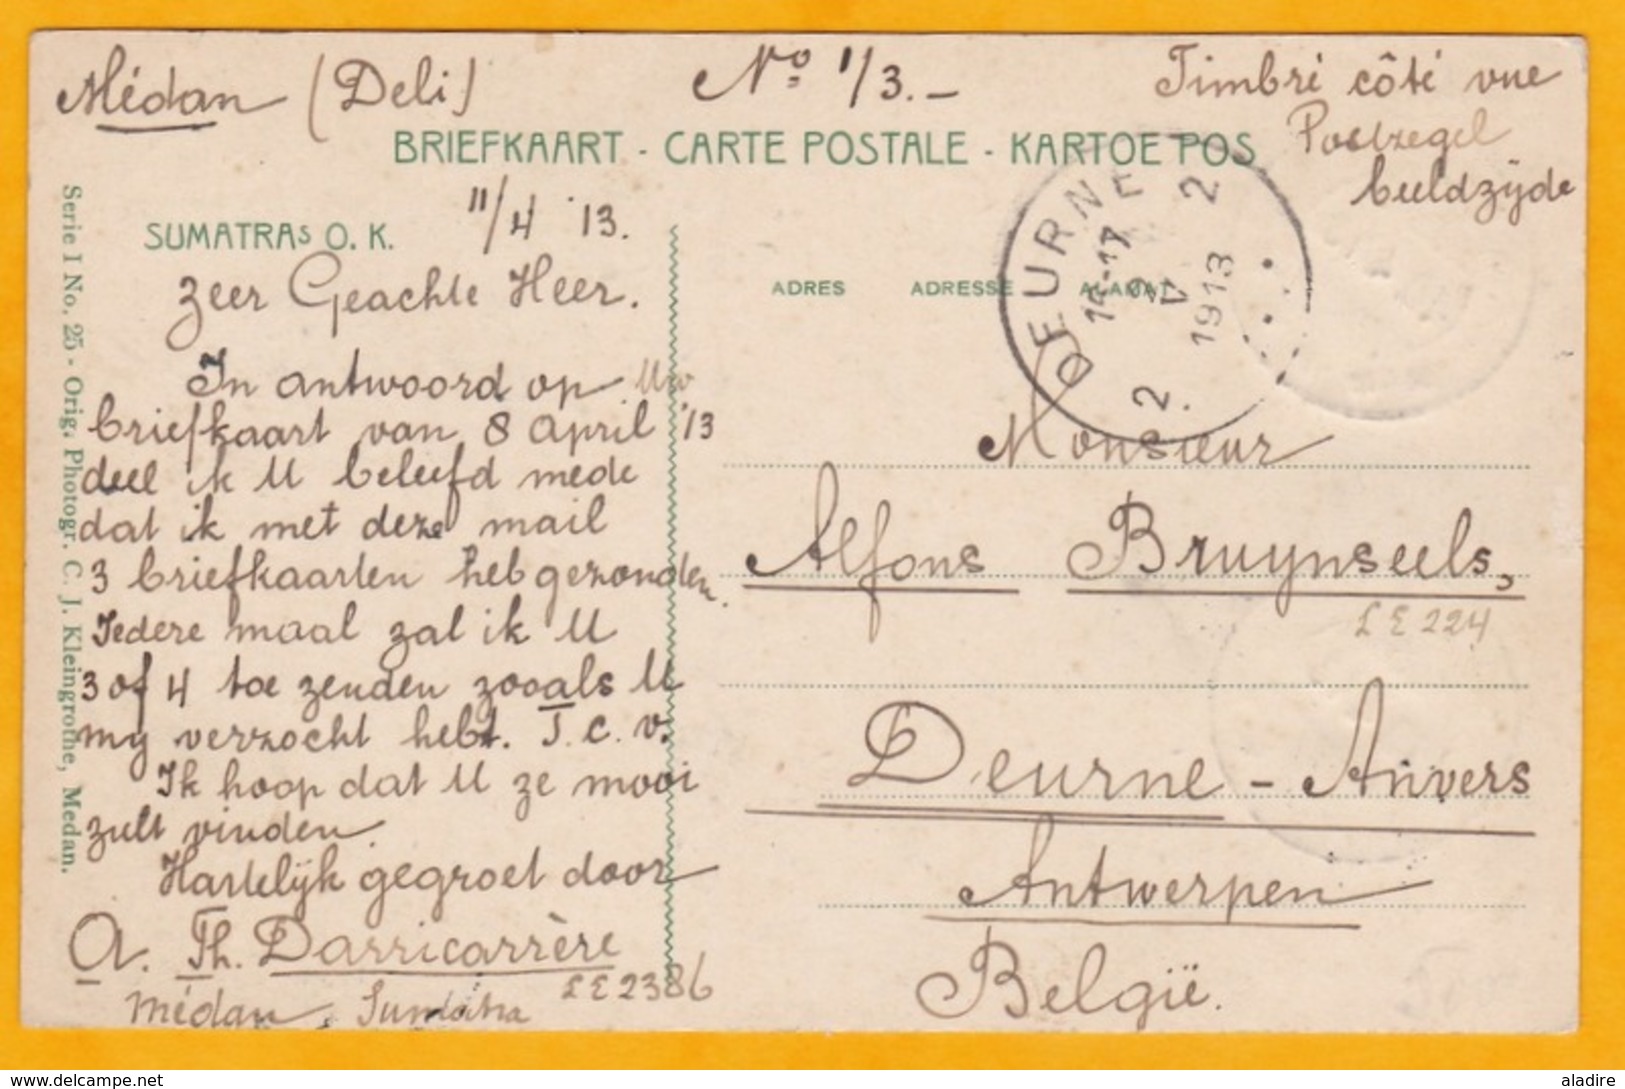 Médan (Deli)
No 1/3.-
Timbré côté vue
Postzegel
beeldzÿde
BRIEFKAART - CARTE POSTALE - KARTOE POS
11/4 '13.
SUMATRAs O. K.
ADRES ADRESSE ALAMAT
DEURNE
2 V 1913
2 2
Zeer Geachte Heer.
In antwoord op Uw
briefkaart van 8 April '13
deel ik U beleefd mede
dat ik met deze mail
3 briefkaarten heb gezonden.
Iedere maal zal ik U
3 of 4 toe zenden zooals U
my verzocht hebt. T. c. v.
Ik hoop dat U ze mooi
zult vinden.
Hartelÿk gegroet door
A. Th. Darricarrère
Médan, Sumatra
LE2386
Monsieur
Alfons Bruynseels,
LE224
Deurne - Anvers
Antwerpen
Belgïe.
Serie I No. 25 - Orig. Photogr. C. J. Kleingrothe, Medan.
delcampe.net
aladire